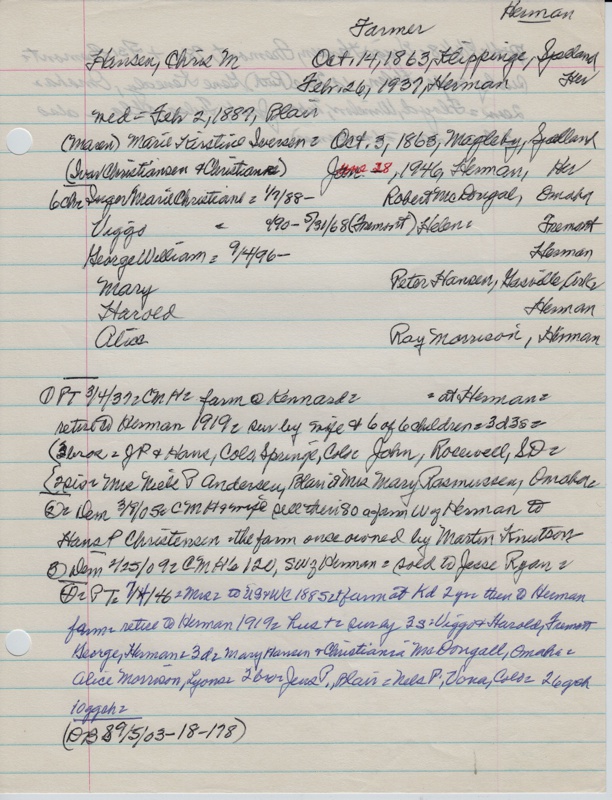 Herman
Farmer
Hansen, Chris M Oct, 14, 1863, Klippinge, Sjælland
Feb. 26, 1937, Herman Her
med - Feb 2, 1887, Blair
(Maren) Marie Kirstine Iversen = Oct. 3, 1863, Magleby, Sjalland
(Ivar Christiansen & Christiane) June 28, 1946, Herman, Her
6 ch = Inger Marie Christiane = 1/7/88 - Robert McDougal, Omaha
Viggo = 4/90 - 5/31/68 (Fremont) Helen = Fremont
George William = 9/4/96 - Herman
Mary Peter Hansen, Gasville, Ark
Harold Herman
Alice Ray Morrison, Herman
① PT 3/4/37 = CMH = farm @ Kennard = = at Herman =
retire to Herman 1919 = sur by wife & 6 of 6 children = 3d 3s =
(3 bros = JP & Hans, Colo Springs, Colo = John, Rosewell, SD =
{2 sis = Mrs Niels P Andersen, Blair & Mrs Mary Rasmussen, Omaha =
② = Dem 3/9/05 = CMH & wife sell their 80 a farm W of Herman to
Hans P Christensen = the farm once owned by Martin Knutson
③ Dem 2/25/09 = CMH's 120, SW of Herman = sold to Jesse Ryan =
④ = PT = 7/4/46 = Mrs = to US & WC 1885 = farm at Kd 2 yr = then to Herman
farm = retire to Herman 1919 = hus + = sur by 3s = Viggo & Harold, Fremont
George, Herman = 3d = Mary Hansen & Christiania McDougall, Omaha =
Alice Morrison, Lyons = 2 bro = Jens P., Blair = Nels P., Vona, Colo = 26 gch
10 ggch =
(DB 89/5/03-18-178)